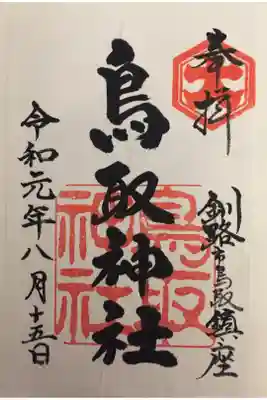 奉拝
釧路市鳥取鎮座
鳥取神社
令和元年八月十五日
鳥取
神社